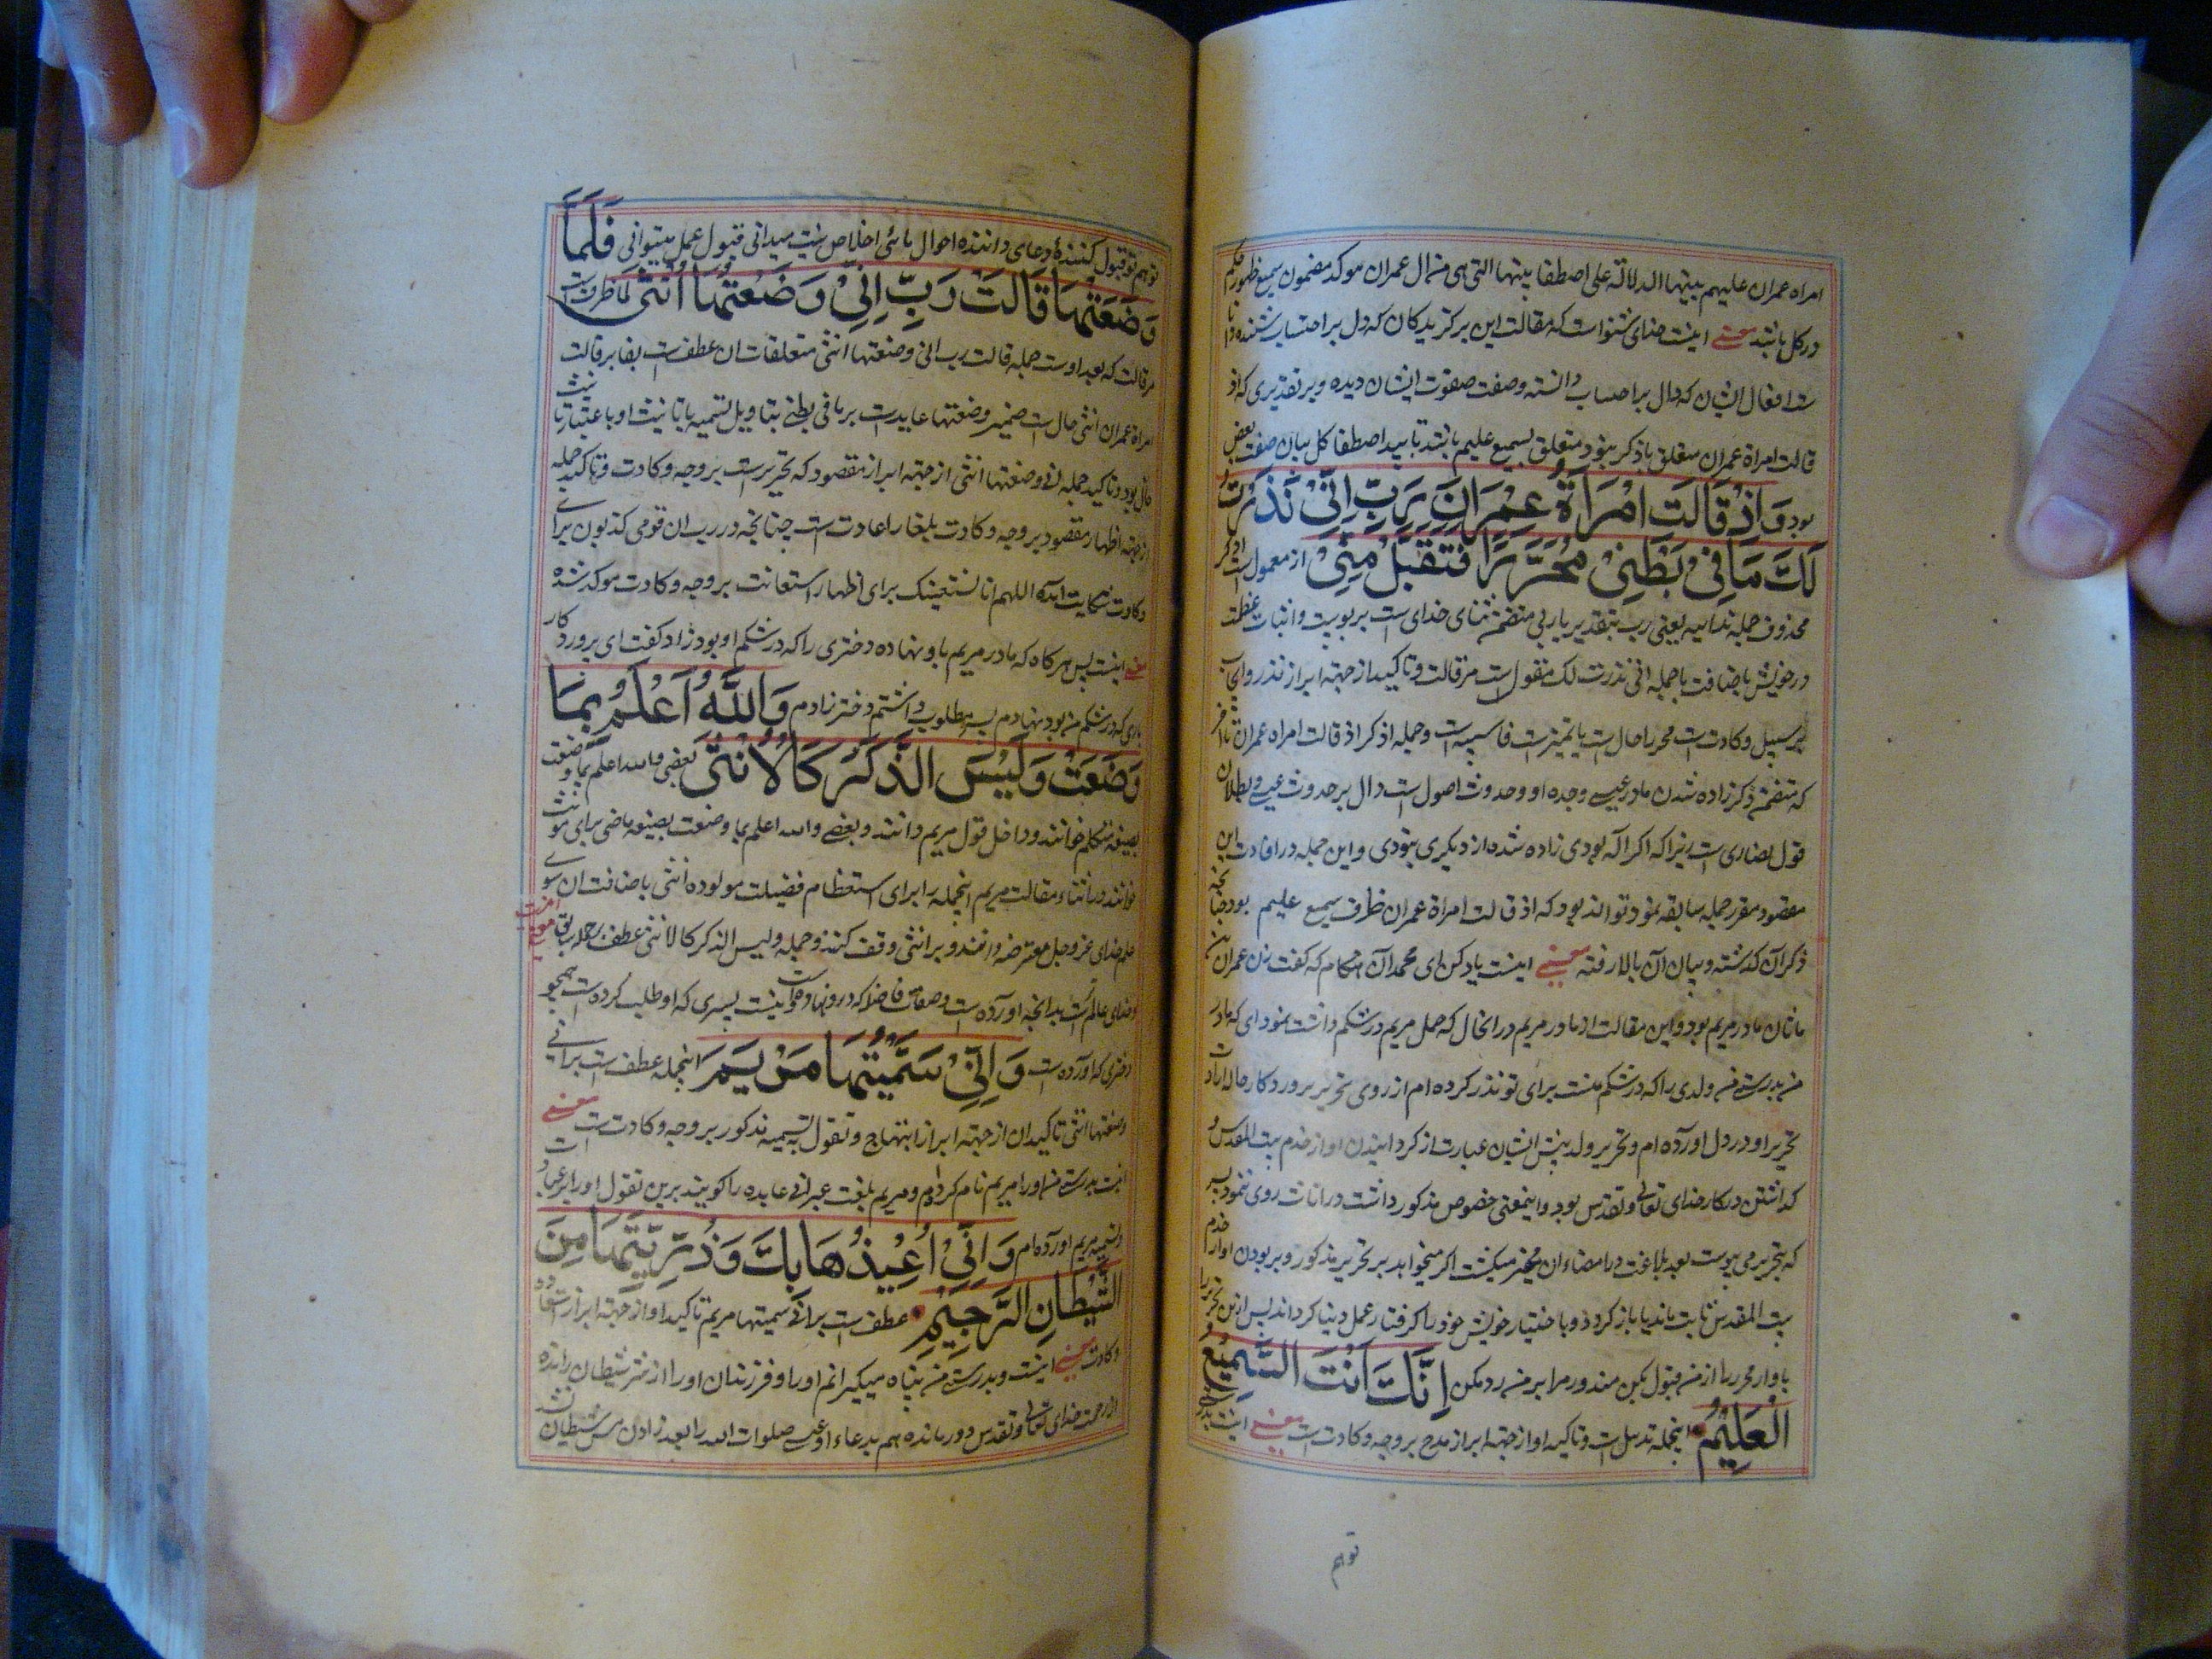 امراه عمران علیهم بینهما الدلالة علی اصطفا بینهما التی هی من ال عمران موکد مضمون سمیع ظهور حکم
در کل باشد معنی اینست خدای شنوا است که مقالت این برکزیدکان که دال بر احتساب شنیده
ست افعال ایشان که دال بر احتساب دانسته وصفت صفوت ایشان دیده وبر تقدیری که اذ
قالت امراة عمران متعلق باذکر بنود متعلق بسمیع علیم باشد تایید اصطفا کل بیان صفت بعض
بود وَاِذْ قَالَتِ امْرَاَةُ عِمْرَانَ رَبِّ اِنِّیْ نَذَرْتُ
لَكَ مَا فِیْ بَطْنِیْ مُحَرَّرًا فَتَقَبَّلْ مِنِّیْ از معمول است اذکر
محذوف جمله ندائیه یعنی رب بتقدیر یا ربی متضمن ثنای خدای است بربوبیت واثبات عظمت
در خویش باضافت با جمله انی نذرت لک مقول است مر قالت وتاکید از جهته ابراز نذر
بر سبیل وکادت است محررا حال است یا تمیز است فا سببیه است وجمله اذکر اذ قالت امراه عمران تا آخر
که متضمن ذکر زاده شدن مادر عیسی وجده او وحدوث اصول است دال بر حدوث عیسی وبطلان
قول نصاری است زیرا که اکر اله بودی زاده شده از دیکری نبودی واین جمله در افادت این
مقصود مقرر جمله سابقه بنود تواند بود که اذ قالت امراة عمران ظرف سمیع علیم بود چنانچه
ذکر آن کذشته وبیان آن بالا رفته معنی اینست یاد کن ای محمد آن هنکام که کفت زن عمران بن
ماثان مادر مریم بود واین مقالت از مادر مریم در انحال که حمل مریم در شکم داشت بنود ای که مادر
من بدرستی من ولدی را که در شکم منست برای تو نذر کرده ام از روی تحریر پروردکار حاله ارادت
تحریر او در دل اورده ام وتحریر ولد پیش ایشان عبارت از کردانیدن او از خدم بیت المقدس و
کذاشتن در کار خدای تعالی وتقدس بود واینمعنی خصوص بذکور داشت در اناث روی ننمود پسر
که بتحریر می پیوست بعد بلاغت در امضاء ان مخیر میکشت اکر میخواهد بر تحریر مذکور وبر بودن او از خدم
بیت المقدس ثابت ماند یا باز کردد وباختیار خویش خود را کرفتار عمل دنیا کرداند پس ازین تحریر را
باوار محرر را از من قبول بکن منذور مرا بر من رد مکن اِنَّكَ اَنْتَ السَّمِیْعُ
الْعَلِیْمُ اینجمله تذییل است وتاکید او از جهته ابراز مدح بر وجه وکادت است معنی اینست بدرستی
توهم
توهم تو قبول کنندهٔ دعای داننده احوال مائی اخلاص نیت میدانی قبول عمل میتوانی فَلَمَّا
وَضَعَتْهَا قَالَتْ رَبِّ اِنِّیْ وَضَعْتُهَا اُنْثٰی لما ظرف است
مر قالت که بعد اوست جمله قالت رب انی وضعتها انثی متعلقات ان عطف است بفا بر قالت
امراة عمران انثی حال است ضمیر وضعتها عاید است بر ما فی بطنی بتاویل تسمیه یا تانیث او باعتبار تانیث
حال بود وتاکید جمله انی وضعتها انثی از جهته ابراز مقصود که تحریر است بر وجه وکادت وتاکید جمله
از جهته اظهار مقصود بر وجه وکادت بلغا را عادت است چنانچه در رب ان قومی کذبون برای
وکادت شکایت آمده اللهم انا نستعینک برای اظهار استعانت بر وجه وکادت موکد شده
معنی اینست پس هرکاه که مادر مریم باو نهاده دختری را که در شکم او بود زاد کفت ای پروردکار
باری که در شکم من بود نهادم پسر مطلوب داشتم دختر زادم وَاللّٰهُ اَعْلَمُ بِمَا
وَضَعَتْ وَلَیْسَ الذَّكَرُ كَالْاُنْثٰی بعضی والله اعلم بما وضعت
بصیغه متکلم خوانند وداخل قول مریم دانند وبعضی والله اعلم بما وضعت بصیغه ماضی برای مونث
خوانند در اثناء مقالت مریم اینجمله را برای استعظام فضیلت مولوده انثی باضافت ان سوی
علم خدای عز وجل معترضه دانند وبر انثی وقف کنند وجمله ولیس الذکر کالانثی عطف بر جمله سابق است معنی اینست
وخدای عالم است بدانچه آورده است وصفات فاضله که در ونهاده است واینست پسری که او طلب کرده است همچو
دختری که آورده است وَاِنِّیْ سَمَّیْتُهَا مَرْیَمَ اینجمله عطف است بر انی
وضعتها انثی تاکید ان از جهته ابراز ابتهاج وتفول به تسمیه مذکور بر وجه وکادت است معنی
اینست بدرستی من او را مریم نام کردم ومریم بلغت عبرانی عابده را کویند برین تفول او را بر عبادت
وتسمیه مریم آورده ام وَاِنِّیْ اُعِیْذُهَا بِكَ وَذُرِّیَّتَهَا مِنَ
الشَّیْطَانِ الرَّجِیْمِ عطف است بر انی سمیتها مریم تاکید او از جهته ابراز استعاذه
وکادت معنی اینست وبدرستی من پناه میکیرانم او را وفرزندان او را از شر شیطان رانده
از رحمت خدای تعالی وتقدس دور مانده هم بدعاء او عیسی صلوات الله را بعد زادن مس شیطان نشد